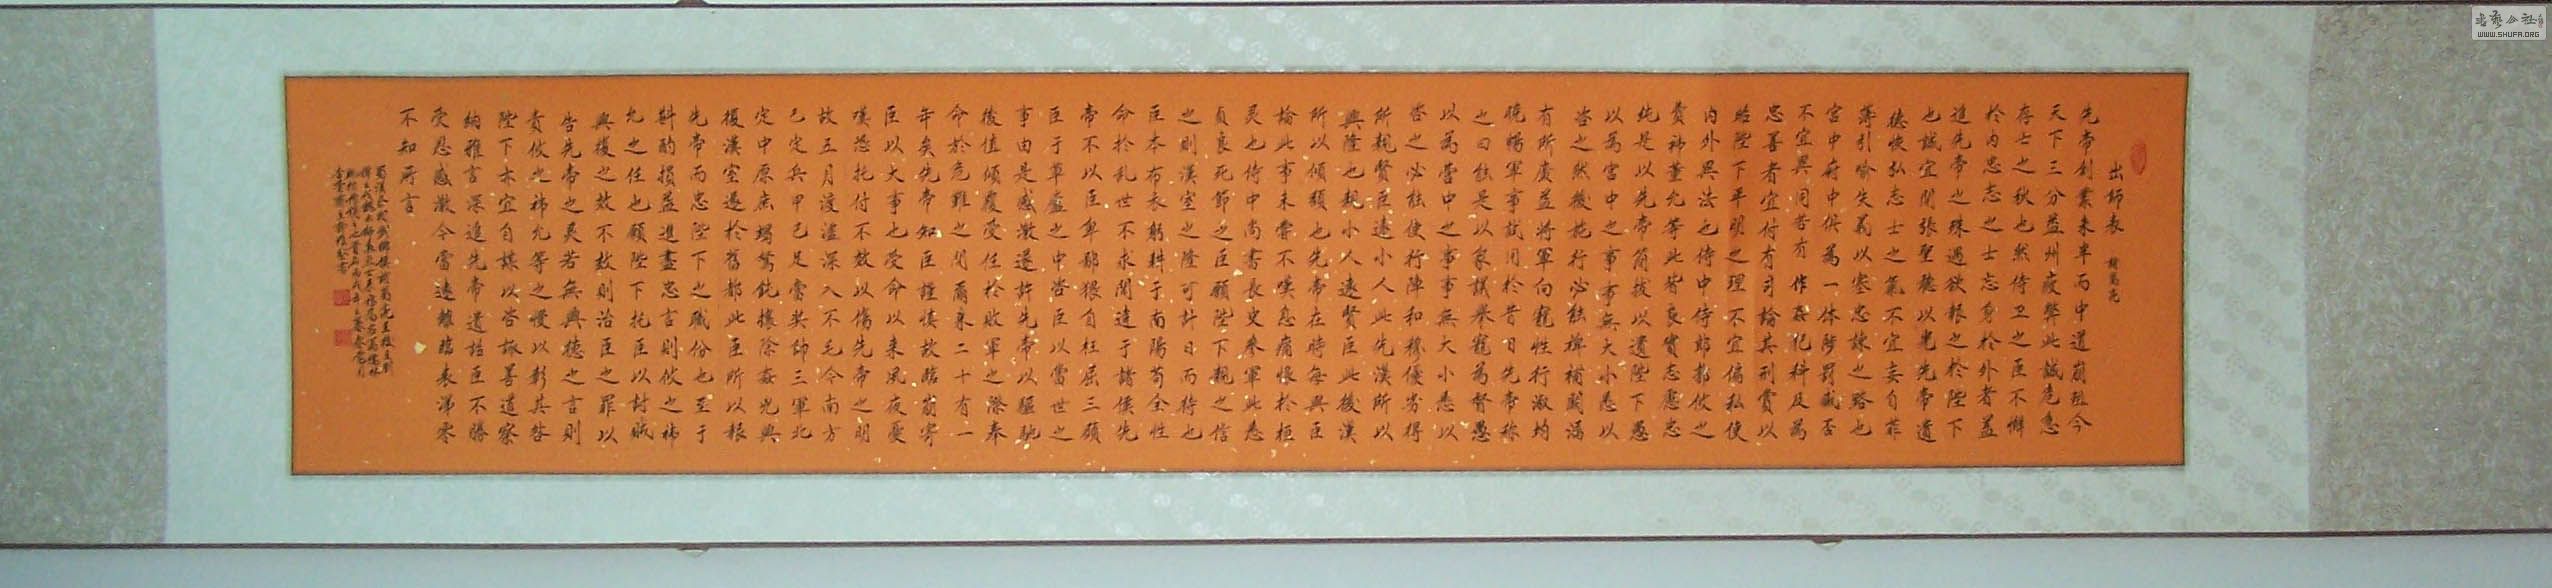 出師表 諸葛亮
先帝創業未半而中道崩殂今
天下三分益州疲弊此誠危急
存亡之秋也然侍卫之臣不懈
於内忠志之士忘身於外者蓋
追先帝之殊遇欲報之於陛下
也誠宜開張聖聽以光先帝遺
德恢弘志士之氣不宜妄自菲
薄引喻失義以塞忠諫之路也
宮中府中俱為一体陟罰臧否
不宜異同若有作姦犯科及為
忠善者宜付有司論其刑賞以
昭陛下平明之理不宜偏私使
内外異法也侍中侍郎郭攸之
費祎董允等此皆良實志慮忠
純是以先帝簡拔以遺陛下愚
以為宮中之事事無大小悉以
咨之然後施行必能裨補闕漏
有所廣益將軍向寵性行淑均
曉暢軍事試用於昔日先帝称
之曰能是以衆議舉寵為督愚
以為營中之事事無大小悉以
咨之必能使行陣和穆優劣得
所親賢臣遠小人此先漢所以
興隆也親小人遠賢臣此後漢
所以傾頹也先帝在時每與臣
論此事未嘗不嘆息痛恨於桓
灵也侍中尚書長史參軍此悉
貞良死節之臣願陛下親之信
之則漢室之隆可計日而待也
臣本布衣躬耕于南陽苟全性
命於乱世不求聞達于諸侯先
帝不以臣卑鄙猥自枉屈三顧
臣于草廬之中咨臣以當世之
事由是感激遂許先帝以驅馳
後值傾覆受任於敗軍之際奉
命於危難之間爾来二十有一
年矣先帝知臣謹慎故臨崩寄
臣以大事也受命以来夙夜憂
嘆恐托付不效以傷先帝之明
故五月渡瀘深入不毛今南方
已定兵甲已足當奖帥三軍北
定中原庶竭駑鈍攘除姦凶興
復漢室還於舊都此臣所以報
先帝而忠陛下之職份也至于
斟酌損益進盡忠言則攸之祎
允之任也願陛下托臣以討賊
興復之效不效則治臣之罪以
告先帝之灵若無興德之言則
責攸之祎允等之慢以彰其咎
陛下亦宜自謀以咨諏善道察
納雅言深追先帝遺詔臣不勝
受恩感激今當遠離臨表涕零
不知所言
WWW.SHUFA.ORG